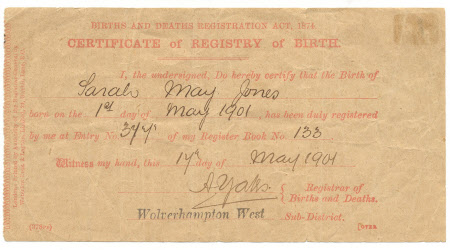 BIRTHS AND DEATHS REGISTRATION ACT, 1874.
CERTIFICATE OF REGISTRY OF BIRTH.
I, the undersigned, Do hereby certify that the Birth of
Sarah May Jones
born on the 1st day of May 1901, has been duly registered
by me at Entry No. of my Register Book No. 133
Witness my hand, this day of May 1901
A Yates Registrar of
Births and Deaths.
Wolverhampton West Sub-District.